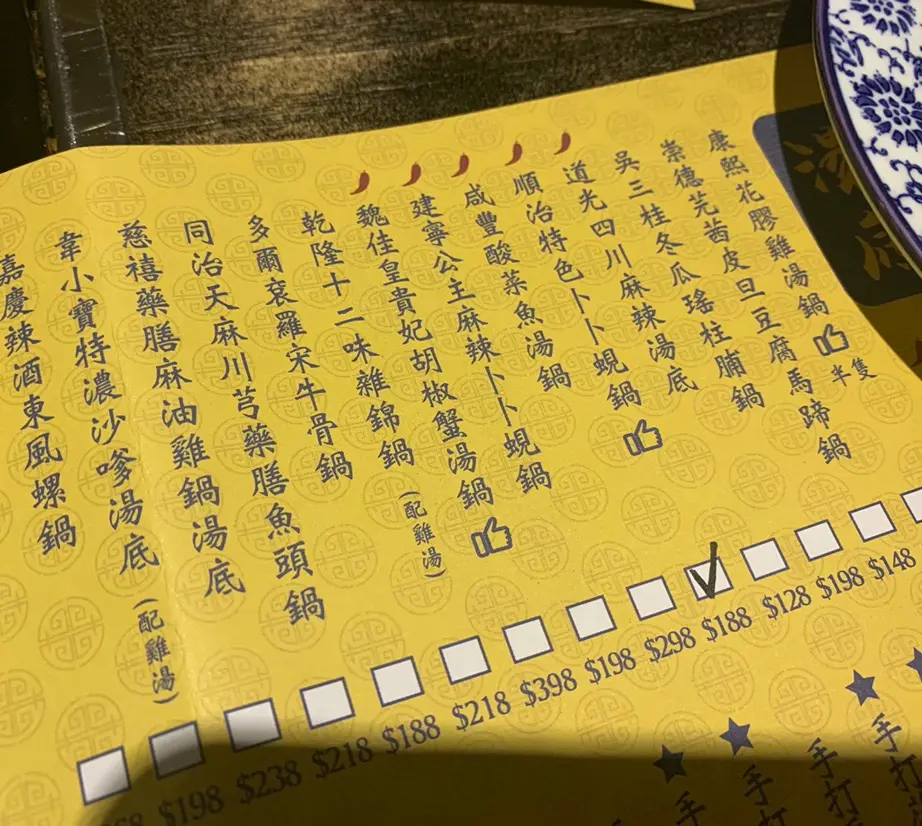 康熙花膠雞湯鍋 半隻
崇德芫茜皮旦豆腐馬蹄鍋
吳三桂冬瓜瑤柱脯鍋
道光四川麻辣湯底
順治特色卜卜蜆鍋
咸豐酸菜魚湯鍋
建寧公主麻辣卜卜蜆鍋
魏佳皇貴妃胡椒蟹湯鍋
乾隆十二味雜錦鍋 (配雞湯)
多爾袞羅宋牛骨鍋
同治天麻川芎藥膳魚頭鍋
慈禧藥膳麻油雞鍋湯底
韋小寶特濃沙嗲湯底 (配雞湯)
嘉慶辣酒東風螺鍋
$148
$198
$128
$188
$298
$198
$398
$218
$188
$218
$238
$198
手打
手打
手打
手